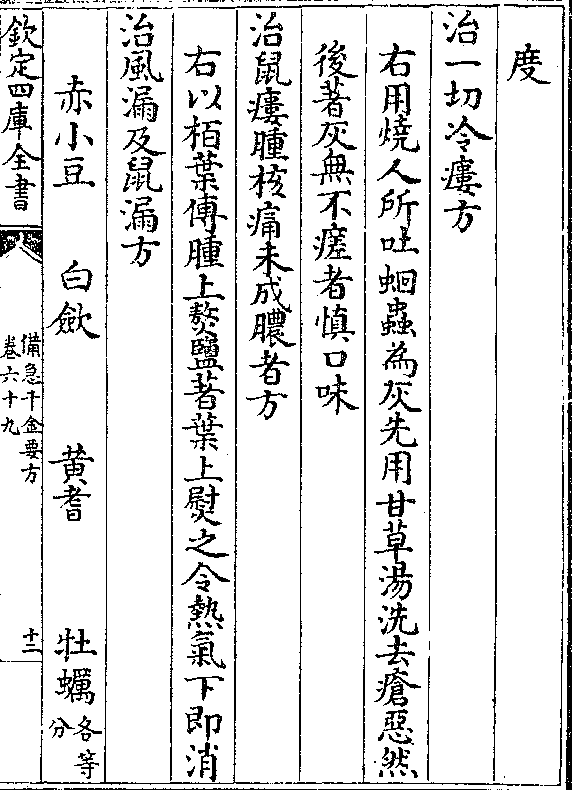 度
治一切冷瘻方
右用燒人所吐蛔蟲為灰先用甘草湯洗去瘡惡然
後著灰無不瘥者慎口味
治鼠瘻腫核痛未成膿者方
右以栢葉傅腫上熬鹽著葉上熨之令熱氣下即消
治風漏及鼠漏方
赤小豆 白歛 黄耆 牡蠣各等分
欽定四庫全書
備急千金要方
卷六十九
十二